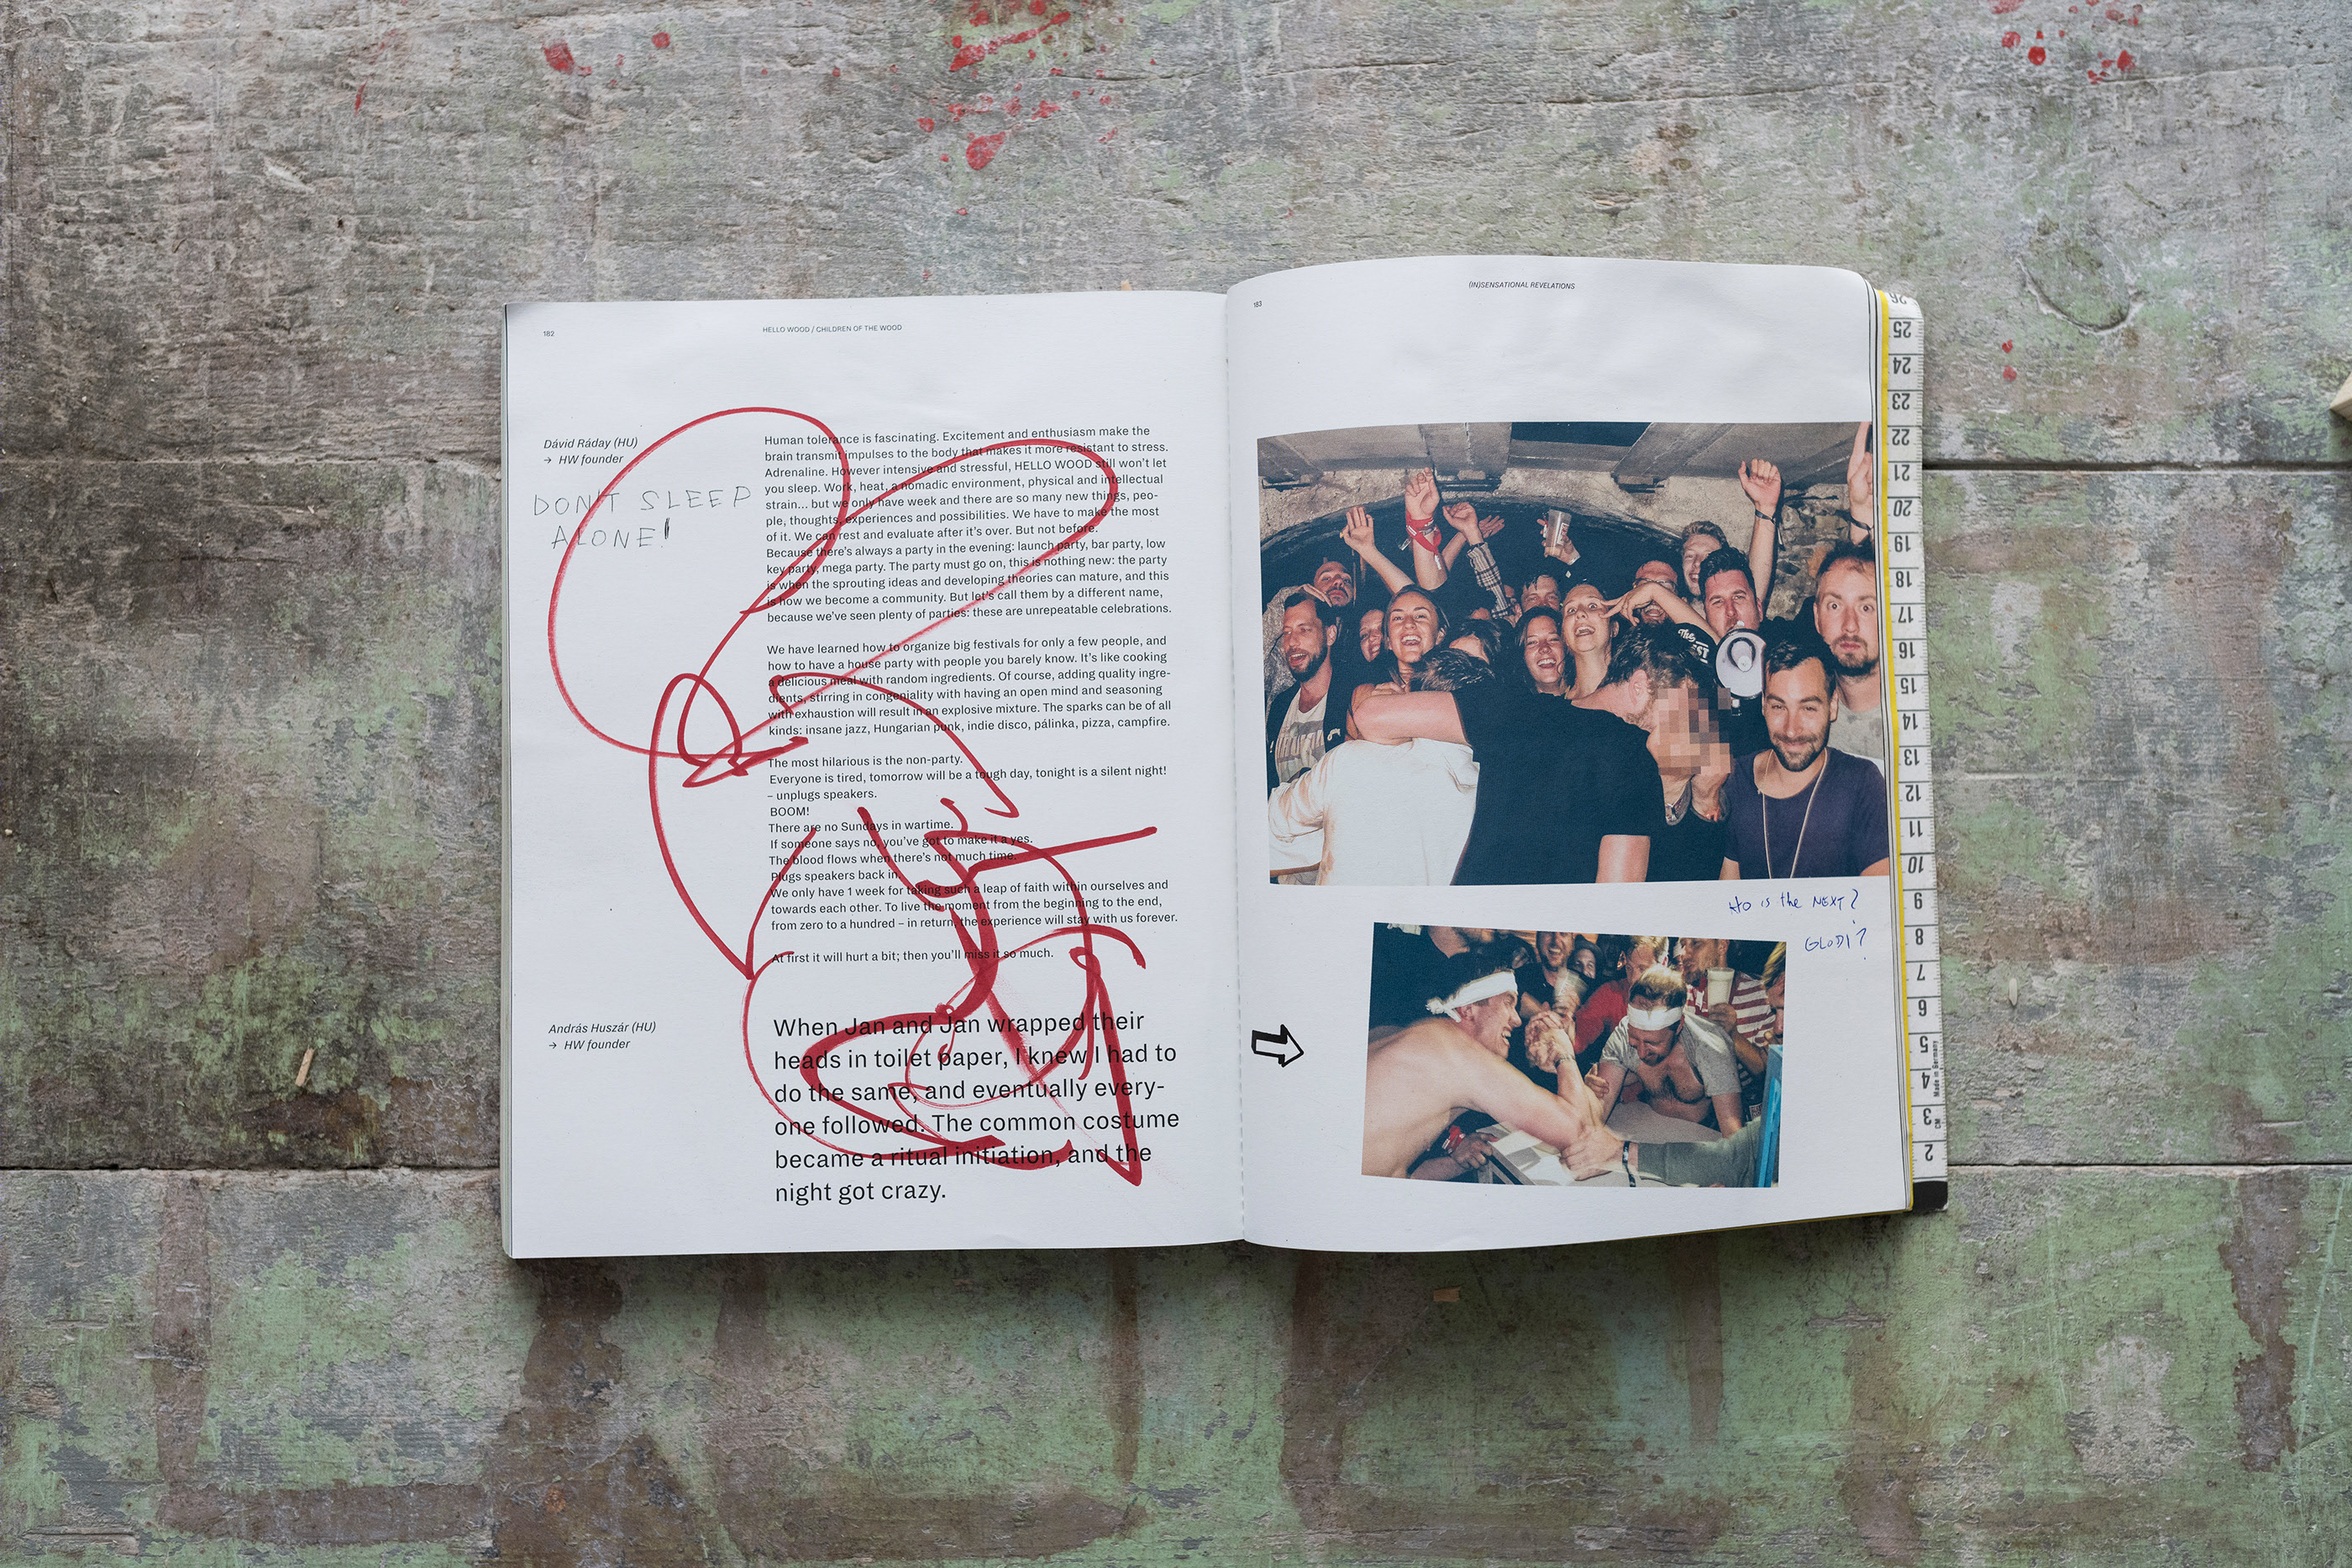 182
HELLO WOOD / CHILDREN OF THE WOOD
Dávid Ráday (HU)
→ HW founder
DON'T SLEEP
ALONE!
Human tolerance is fascinating. Excitement and enthusiasm make the
brain transmit impulses to the body that makes it more resistant to stress.
Adrenaline. However intensive and stressful, HELLO WOOD still won't let
you sleep. Work, heat, a nomadic environment, physical and intellectual
strain... but we only have week and there are so many new things, peo-
ple, thoughts, experiences and possibilities. We have to make the most
of it. We can rest and evaluate after it's over. But not before.
Because there's always a party in the evening: launch party, bar party, low
key party, mega party. The party must go on, this is nothing new: the party
is when the sprouting ideas and developing theories can mature, and this
is how we become a community. But let's call them by a different name,
because we've seen plenty of parties: these are unrepeatable celebrations.
We have learned how to organize big festivals for only a few people, and
how to have a house party with people you barely know. It's like cooking
a delicious meal with random ingredients. Of course, adding quality ingre-
dients, stirring in congeniality with having an open mind and seasoning
with exhaustion will result in an explosive mixture. The sparks can be of all
kinds: insane jazz, Hungarian punk, indie disco, pálinka, pizza, campfire.
The most hilarious is the non-party.
Everyone is tired, tomorrow will be a tough day, tonight is a silent night!
– unplugs speakers.
BOOM!
There are no Sundays in wartime.
If someone says no, you've got to make it a yes.
The blood flows when there's not much time.
Plugs speakers back in.
We only have 1 week for taking such a leap of faith within ourselves and
towards each other. To live the moment from the beginning to the end,
from zero to a hundred – in return, the experience will stay with us forever.
At first it will hurt a bit; then you'll miss it so much.
András Huszár (HU)
→ HW founder
When Jan and Jan wrapped their
heads in toilet paper, I knew I had to
do the same, and eventually every-
one followed. The common costume
became a ritual initiation, and the
night got crazy.
183
(IN)SENSATIONAL REVELATIONS
The
HO is the NEXT?
GLODI?
26
25
24
23
22
21
20
19
18
17
16
15
14
13
12
11
10
9
8
7
6
5
4
3
2
CM
Made in Germany